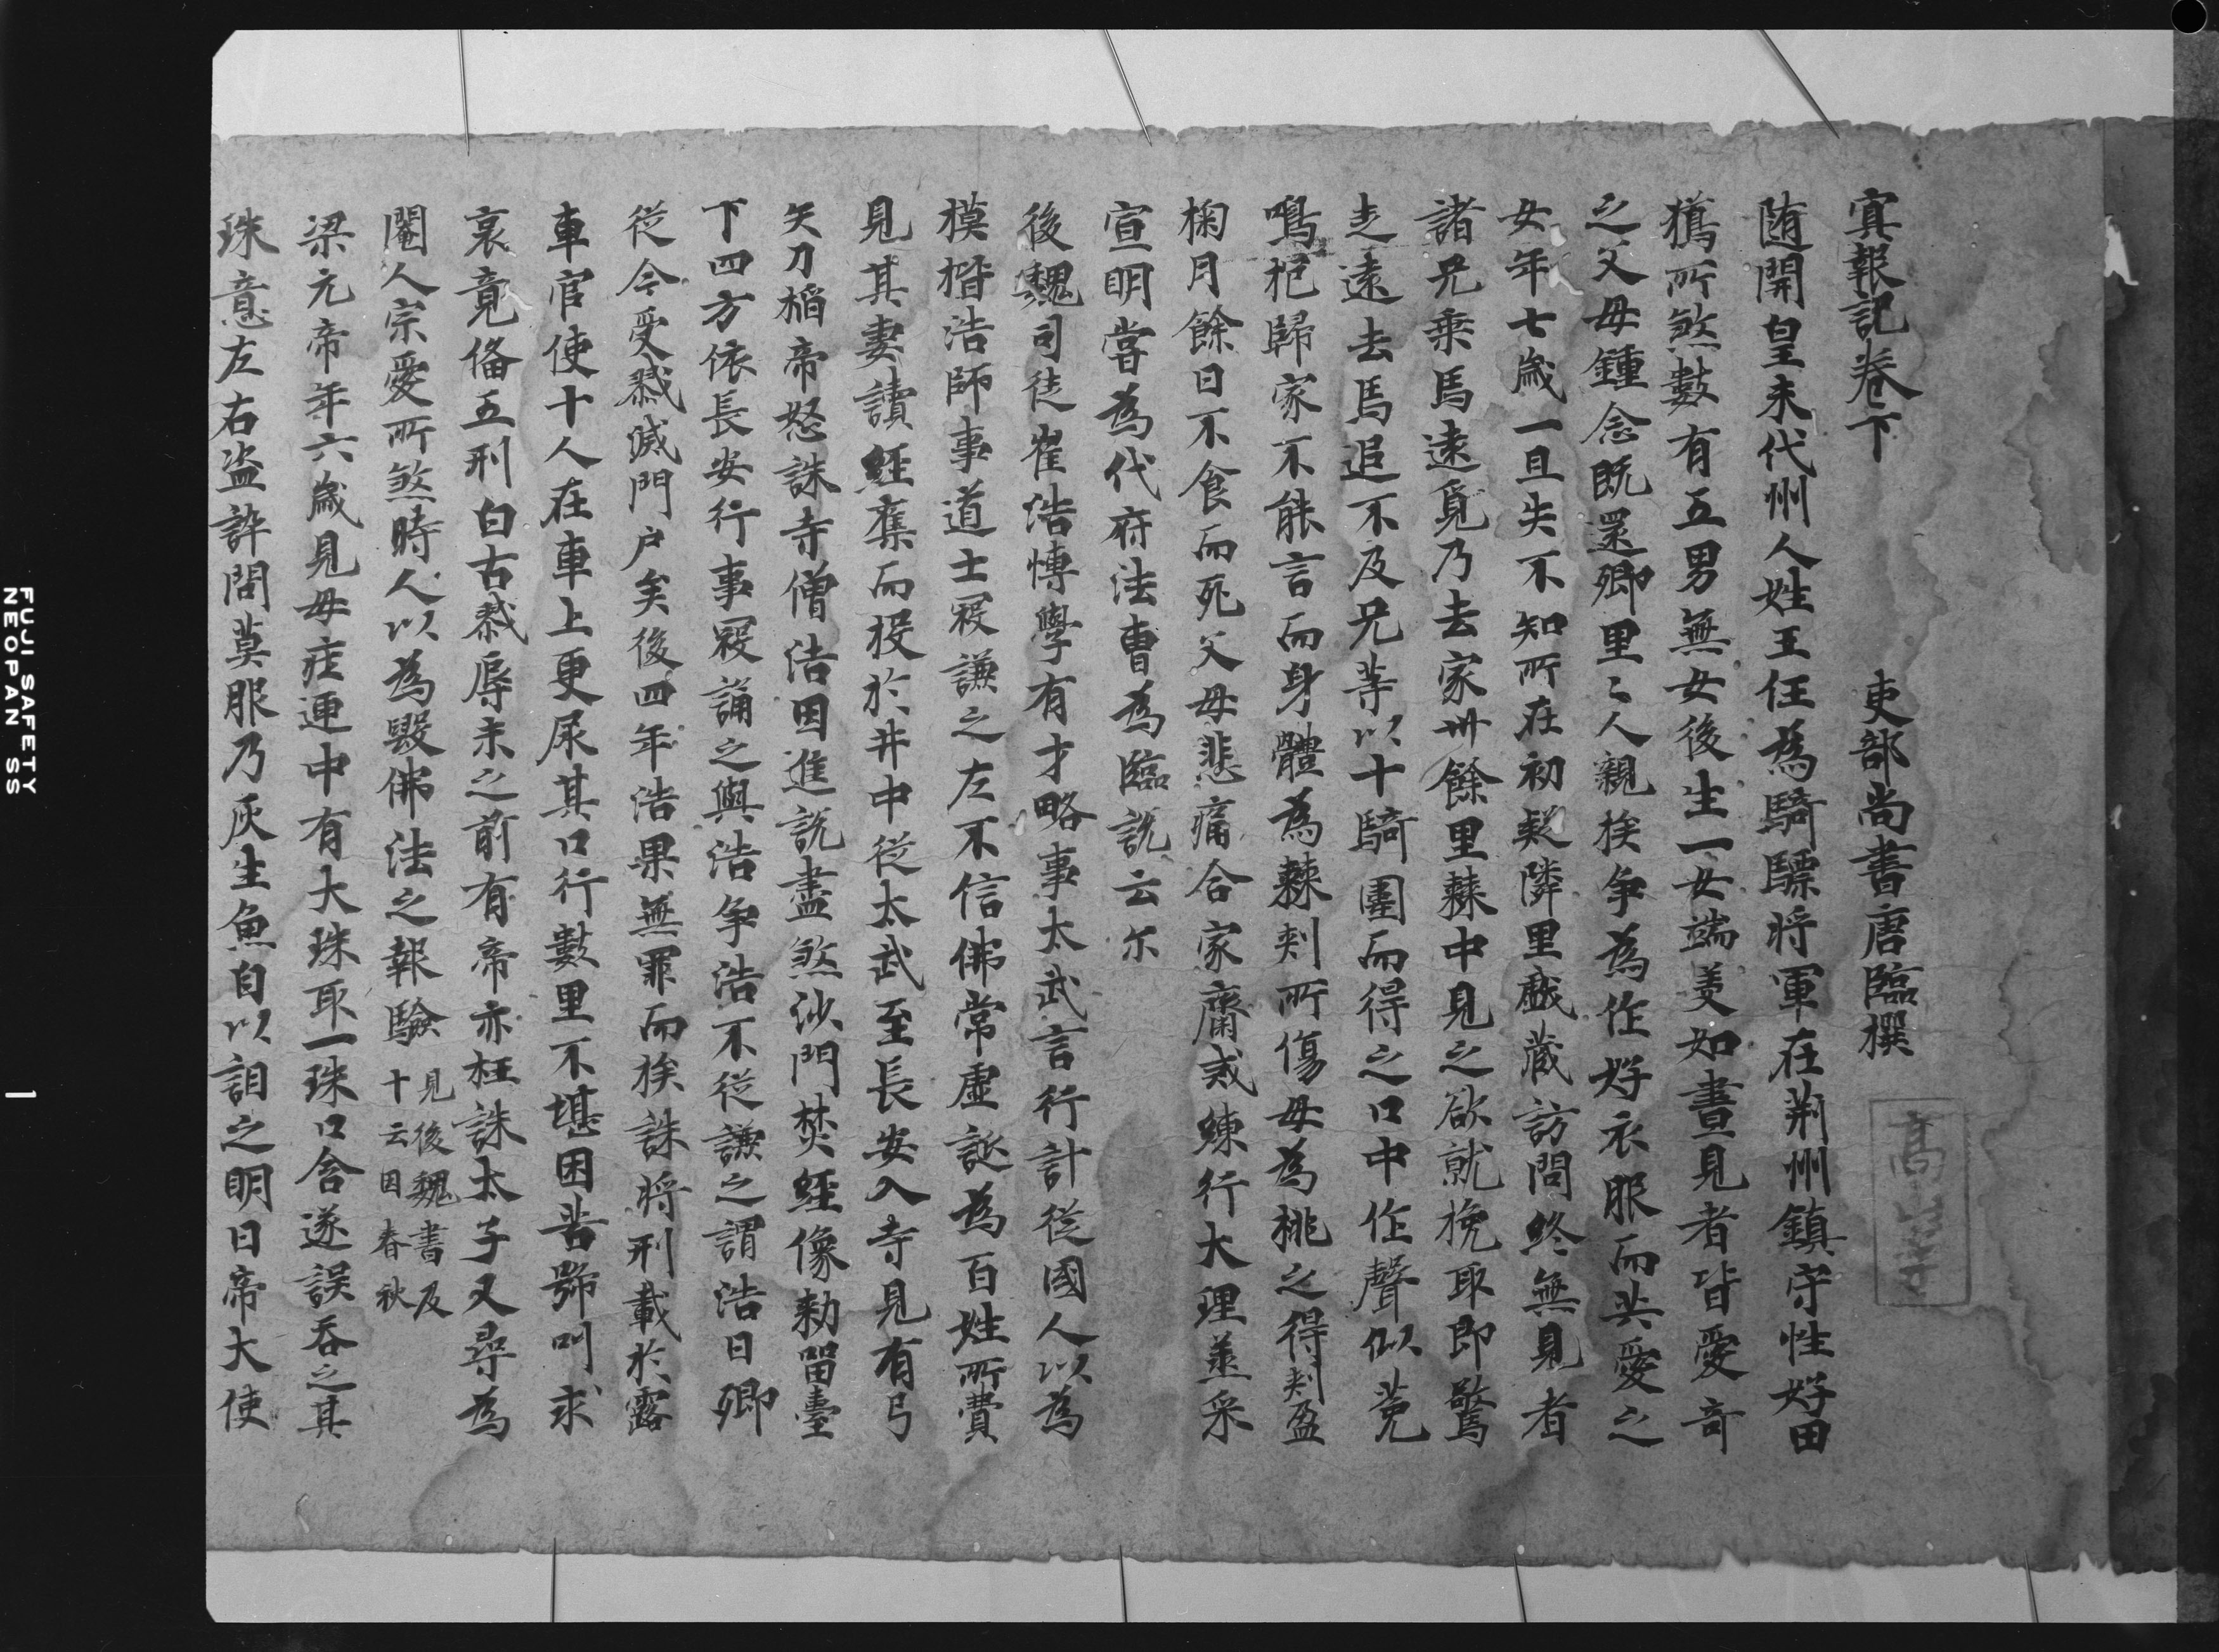 冥報記卷下　吏部尚書唐臨撰
高山寺
随開皇末代州人姓王任為騎驃将軍在荊州鎮守性好田
獵所煞數有五男無女後生一女端美如畫見者皆愛奇
之父母鍾念既還郷里々人親族争為作好衣服而共愛之
女年七歳一旦失不知所在初疑隣里戲藏訪問終無見者
諸兄乗馬遠覓乃去家卅餘里棘中見之欲就挽取即驚
走遠去馬追不及兄等以十騎圍而得之口中作聲似菟
鳴抱歸家不能言而身體為棘刾所傷母為桃之得刾盈
掬月餘日不食而死父母悲痛合家齋戒練行大理丞采
宣明甞為代府法曹為臨説云尓
後魏司徒崔浩博學有才略事太武言行計從國人以為
模楷浩師事道士冦謙之左不信佛常虚誕為百姓所費
見其妻讀經奪而投於井中從太武至長安入寺見有弓
矢刀楯帝怒誅寺僧浩因進説盡煞沙門焚經像勑留臺
下四方依長安行事冦誦之與浩争浩不從謙之謂浩曰卿
從今受戮滅門户矣後四年浩果無罪而族誅将刑載於露
車官使十人在車上更尿其口行數里不堪困苦號叫求
哀竟俻五刑自古戮辱未之前有帝亦枉誅太子又尋為
閹人宗愛所煞時人以為毀佛法之報驗 見後魏書及
十云因春秋
梁元帝年六歳見母庄連中有大珠取一珠口含遂誤吞之其
珠意左右盗許問莫服乃灰生魚目以詛之明日帝大使
FUJI SAFETY
NEOPAN SS
1